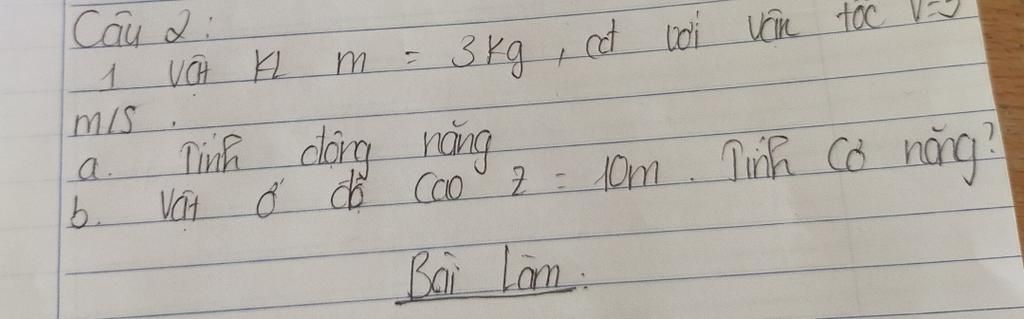 Câu 2:
1 vật KL m = 3kg, cđ với vận tốc v=5
m/s.
a. Tính động năng
b. Vật ở độ cao z = 10m. Tính cơ năng?
Bài làm: